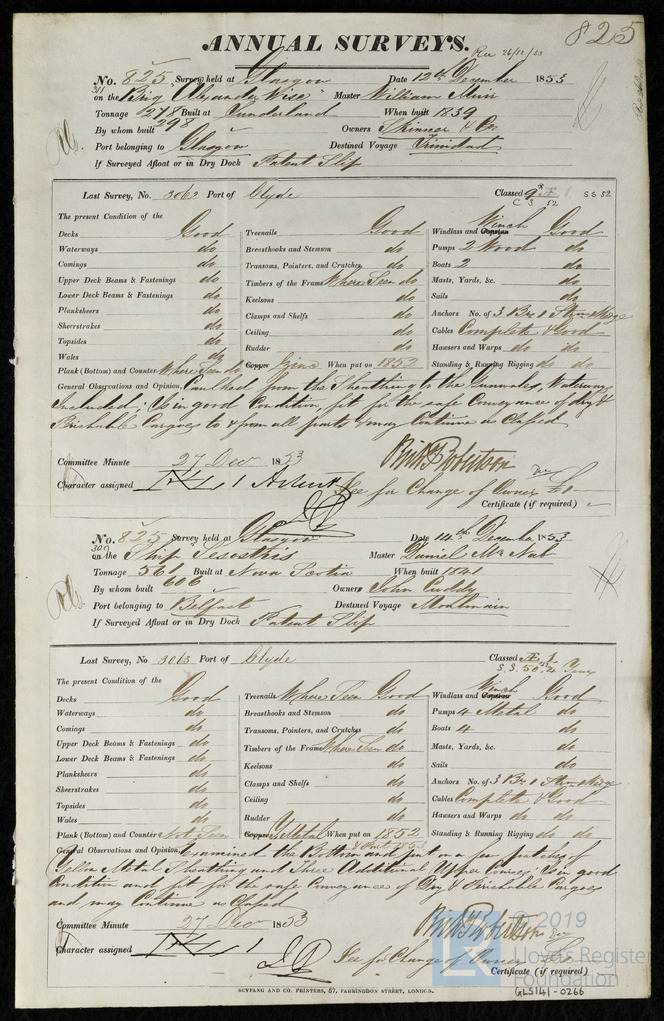 825
ANNUAL SURVEYS.
Rec 26/12/53
No. 825 Survey held at Glasgow Date 12th December 1853
on the Brig "Alexander Wise" Master William Muir
Tonnage 278 Built at Sunderland When built 1839
298
By whom built Owners Skinner & Co
Port belonging to Glasgow Destined Voyage Trinidad
If Surveyed Afloat or in Dry Dock Patent Slip
Last Survey, No. 3062 Port of Clyde Classed
The present Condition of the
Decks Good
Waterways do
Comings do
Upper Deck Beams & Fastenings do
Lower Deck Beams & Fastenings do
Planksheers do
Sheerstrakes do
Topsides do
Wales do
Plank (Bottom) and Counter Where Seen do
Treenails Good
Breasthooks and Stemson do
Transoms, Pointers, and Crutches do
Timbers of the Frame Where Seen do
Keelsons do
Clamps and Shelfs do
Ceiling do
Rudder do
Copper Zinc When put on 1852
Winch
Windlass and Capstan Good
Pumps 2 Wood do
Boats 2 do
Masts, Yards, &c. do
Sails do
Anchors No. of 3 Br 1 Strm & Kedge
Cables Complete & Good
Hawsers and Warps do do
Standing & Running Rigging do do
General Observations and Opinion, Caulked from the Sheathing to the Gunwales, Waterways
Included; Is in good Condition, fit for the safe Conveyance of dry &
Perishable Cargoes to & from all parts & may Continue as Classed
Committee Minute 27 Dec 1853
Character assigned
See for Change of Owner
Certificate (if required)
No. 825 Survey held at Glasgow Date 14th December 1853
on the Ship "Sesostris" Master Daniel McNab
Tonnage 561 Built at Nova Scotia When built 1841
606
By whom built Owners John Cuddy
Port belonging to Belfast Destined Voyage Moulmain
If Surveyed Afloat or in Dry Dock Patent Slip
Last Survey, No 3013 Port of Clyde Classed Æ 1
The present Condition of the
Decks Good
Waterways do
Comings do
Upper Deck Beams & Fastenings do
Lower Deck Beams & Fastenings do
Planksheers do
Sheerstrakes do
Topsides do
Wales do
Plank (Bottom) and Counter Not Seen
Treenails Where Seen Good
Breasthooks and Stemson do
Transoms, Pointers, and Crutches do
Timbers of the Frame Where Seen do
Keelsons do
Clamps and Shelfs do
Ceiling do
Rudder do
Copper Y Metal When put on 1852
& Part 1853
Winch
Windlass and Capstan Good
Pumps 4 Metal do
Boats 4 do
Masts, Yards, &c. do
Sails do
Anchors No. of 3 Br 1 Strm & Kedge
Cables Complete & Good
Hawsers and Warps do do
Standing & Running Rigging do do
General Observations and Opinion, Examined the Bottom and put on a few patches of
Yellow Metal Sheathing and Three Additional Upper Courses; Is in good
Condition and fit for the safe Conveyance of Dry & Perishable Cargoes
and may Continue as Classed
Committee Minute 27 Dec 1853
Character assigned
See for Change of Owner
Certificate (if required)
© 2019
Lloyd's Register
Foundation
SEYFANG AND CO. PRINTERS, 57, FARRINGDON STREET, LONDON.
GLS141-0266